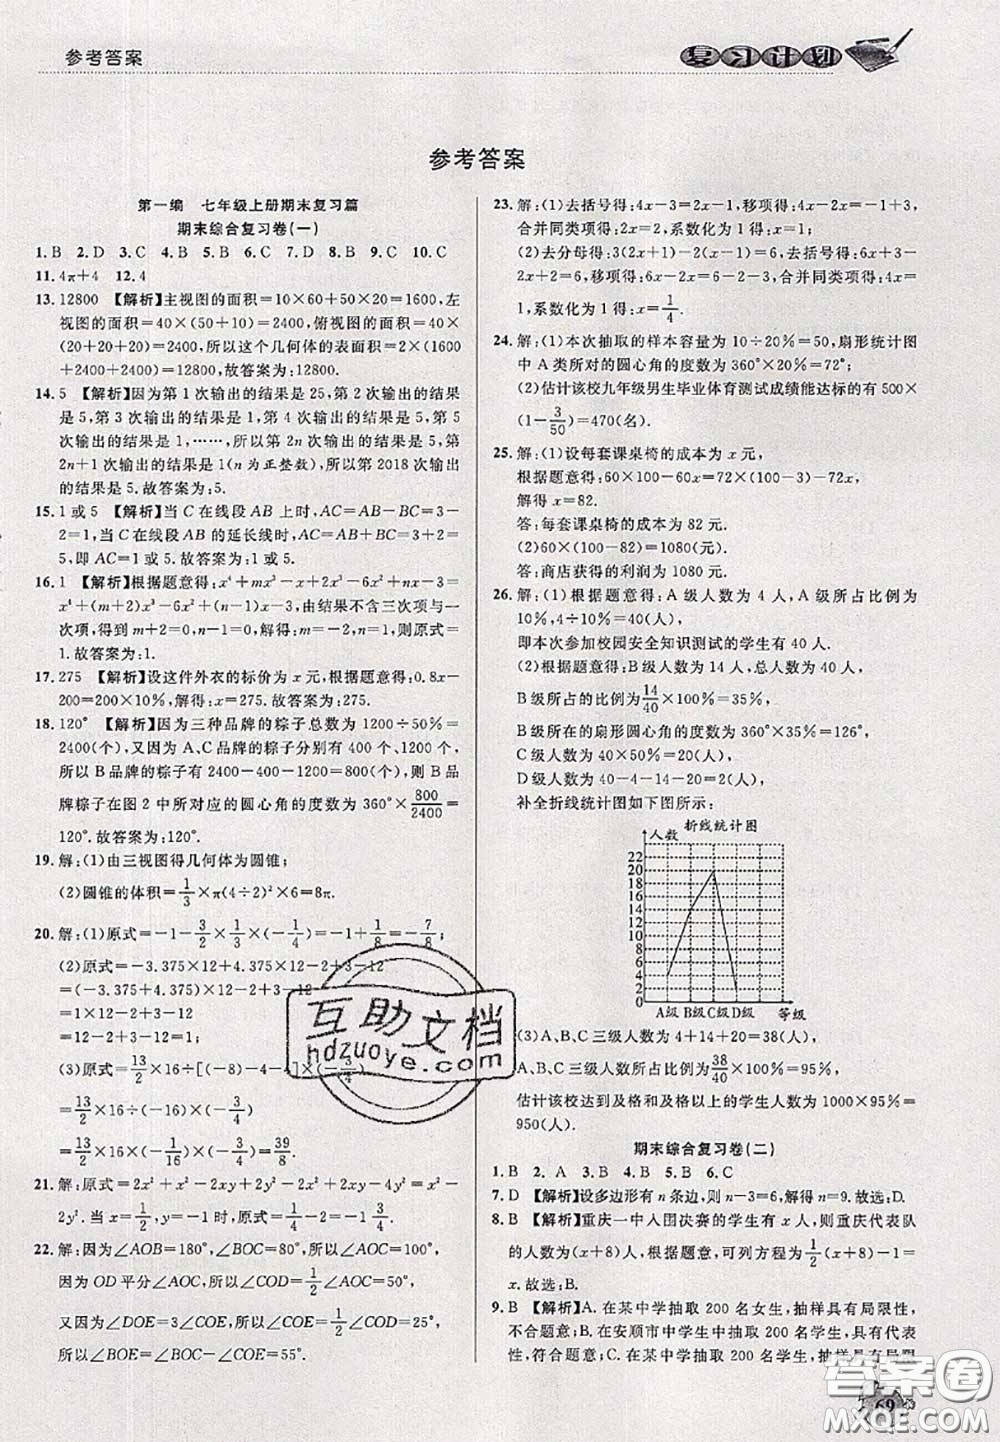 参考答案
复习计划
参考答案
第一编 七年级上册期末复习篇
期末综合复习卷(一)
1. B 2. D 3. C 4. B 5. B 6. C 7. D 8. D 9. C 10. C
11. 4π+4 12. 4
13. 12800 【解析】主视图的面积=10×60+50×20=1600,左
视图的面积=40×(50+10)=2400,俯视图的面积=40×
(20+20+20)=2400,所以这个几何体的表面积=2×(1600
+2400+2400)=12800.故答案为:12800.
14. 5 【解析】因为第 1 次输出的结果是 25,第 2 次输出的结果
是 5,第 3 次输出的结果是 1,第 4 次输出的结果是 5,第 5
次输出的结果是 1,……,所以第 2n 次输出的结果是 5,第
2n+1 次输出的结果是 1(n 为正整数),所以第 2018 次输出
的结果是 5.故答案为:5.
15. 1 或 5 【解析】当 C 在线段 AB 上时,AC=AB-BC=3-
2=1,当 C 在线段 AB 的延长线时,AC=AB+BC=3+2=
5,即 AC=1 或 5.故答案为:1 或 5.
16. 1 【解析】根据题意得:x⁴+mx³-x+2x³-6x²+nx-3=
x⁴+(m+2)x³-6x²+(n-1)x-3,由结果不含三次项与一
次项,得到 m+2=0,n-1=0,解得:m=-2,n=1,则原式=
1.故答案为:1.
17. 275 【解析】设这件外衣的标价为 x 元,根据题意得:0.8x-
200=200×10%,解得:x=275.故答案为:275.
18. 120° 【解析】因为三种品牌的粽子总数为 1200÷50%=
2400(个),又因为 A、C 品牌的粽子分别有 400 个、1200 个,
所以 B 品牌粽子有 2400-400-1200=800(个),则 B 品
牌粽子在图 2 中所对应的圆心角的度数为 360°×800/2400=
120°.故答案为:120°.
19. 解:(1)由三视图得几何体为圆锥;
(2)圆锥的体积=1/3×π(4÷2)²×6=8π.
20. 解:(1)原式=-1-3/2×1/3×(-1/4)=-1+1/8=-7/8;
(2)原式=-3.375×12+4.375×12-2+3-12
=(-3.375+4.375)×12-2+3-12
=1×12-2+3-12
=12-2+3-12
=1;
(3)原式=13/2×16÷[(-8)-8]×(-3/4)
=13/2×16÷(-16)×(-3/4)
=13/2×16×(-1/16)×(-3/4)=39/8.
21. 解:原式=2x²+x²-2xy+2y²-2x²+2xy-4y²=x²-
2y².当 x=1/2,y=-1时,原式=1/4-2=-1 3/4.
22. 解:因为∠AOB=180°,∠BOC=80°,所以∠AOC=100°,
因为 OD 平分∠AOC,所以∠COD=1/2∠AOC=50°,
又因为∠DOE=3∠COE,所以∠COE=1/2∠COD=25°,
所以∠BOE=∠BOC-∠COE=55°.
23. 解:(1)去括号得:4x-3=2x-1,移项得:4x-2x=-1+3,
合并同类项得:2x=2,系数化为 1 得:x=1;
(2)去分母得:3(2x-1)=2(x-1)-6,去括号得:6x-3=
2x-2-6,移项得:6x-2x=-6-2+3,合并同类项得:4x=
1,系数化为 1 得:x=1/4.
24. 解:(1)本次抽取的样本容量为 10÷20%=50,扇形统计图
中 A 类所对的圆心角的度数为 360°×20%=72°;
(2)估计该校九年级男生毕业体育测试成绩能达标的有 500×
(1-3/50)=470(名).
25. 解:(1)设每套课桌椅的成本为 x 元,
根据题意得:60×100-60x=72×(100-3)-72x,
解得 x=82.
答:每套课桌椅的成本为 82 元.
(2)60×(100-82)=1080(元).
答:商店获得的利润为 1080 元.
26. 解:(1)根据题意得:A 级人数为 4 人,A 级所占比例为
10%,4÷10%=40(人),
即本次参加校园安全知识测试的学生有 40 人.
(2)根据题意得:B 级人数为 14 人,总人数为 40 人,
B 级所占的比例为14/40×100%=35%,
B 级所在的扇形圆心角的度数为 360°×35%=126°,
C 级人数为 40×50%=20(人),
D 级人数为 40-4-14-20=2(人),
补全折线统计图如下图所示:
折线统计图
人数
22
20
18
16
14
12
10
8
6
4
2
0
A级 B级 C级 D级 等级
(3)A、B、C 三级人数为 4+14+20=38(人),
A、B、C 三级人数所占比例为38/40×100%=95%,
估计该校达到及格和及格以上的学生人数为 1000×95%=
950(人).
期末综合复习卷(二)
1. B 2. A 3. B 4. B 5. B 6. C
7. D 【解析】设多边形有 n 条边,则 n-3=6,解得 n=9.故选:D.
8. B 【解析】重庆一中入围决赛的学生有 x 人,则重庆代表队
的人数为(x+8)人,根据题意,可列方程为1/2(x+8)-1=
x.故选:B.
9. B 【解析】A. 在某中学抽取 200 名女生,抽样具有局限性,
不合题意;B. 在安顺市中学生中抽取 200 名学生,具有代表
性,符合题意;C. 在某中学抽取 200 名学生,抽样具有局限
69
互助文档
hdzuoye.com
答案圈
MXQE.COM